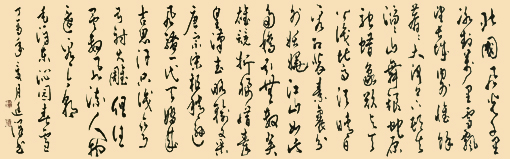 北國風光千里
冰封萬里雪飄
望長城内外惟餘
莽莽大河上下頓失
滔滔山舞銀蛇原
馳蠟象欲与天
公試比高須晴日
看紅裝素裹分
外妖嬈江山如此
多嬌引無數英
雄競折腰惜秦
皇漢武略輸文采
唐宗宋祖稍遜
風騷一代天驕成
吉思汗只識彎
弓射大雕俱往
矣數風流人物
還看今朝
毛澤東沁園春雪
丁亥年